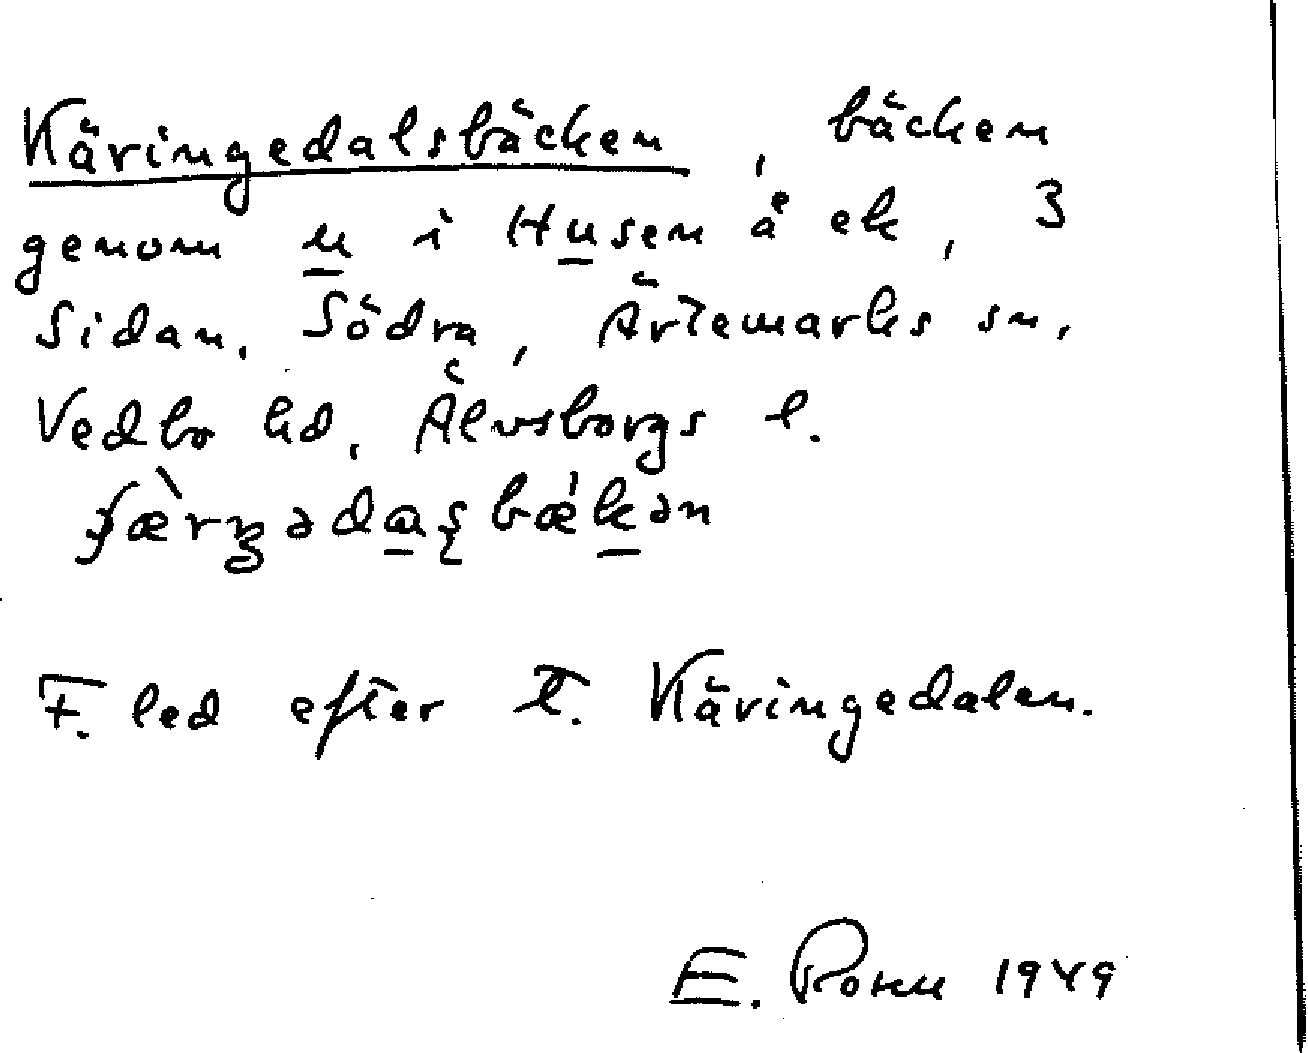 Käringedalsbäcken, bäcken
genom u i Husen å ek, 3
Sidan, Södra, Ärtemarks sn,
Vedbo hd, Älvsborgs l.
F. led efter t. Käringedalen.
E. Rohn 1949